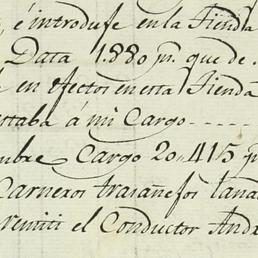 é introduſe en la Tienda
Data 1880 ps. que de
en efectos en esta Tienda
estaba á mi Cargo - - - -
mbre Cargo 20,415 p
Carneros trasañeſos lana
remiti el Conductor Andr